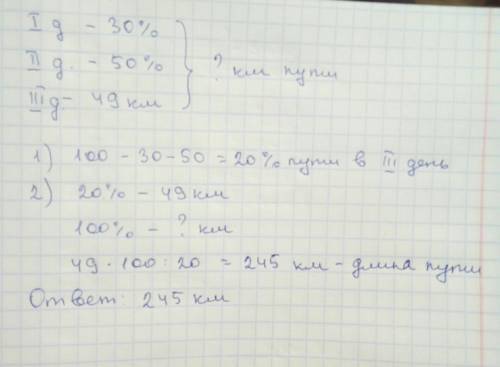 I д - 30%
II д. - 50%
III д - 49 км
? км пути
1) 100 - 30 - 50 = 20% пути в III день
2) 20% - 49 км
100% - ? км
49 · 100 : 20 = 245 км - длина пути
Ответ: 245 км